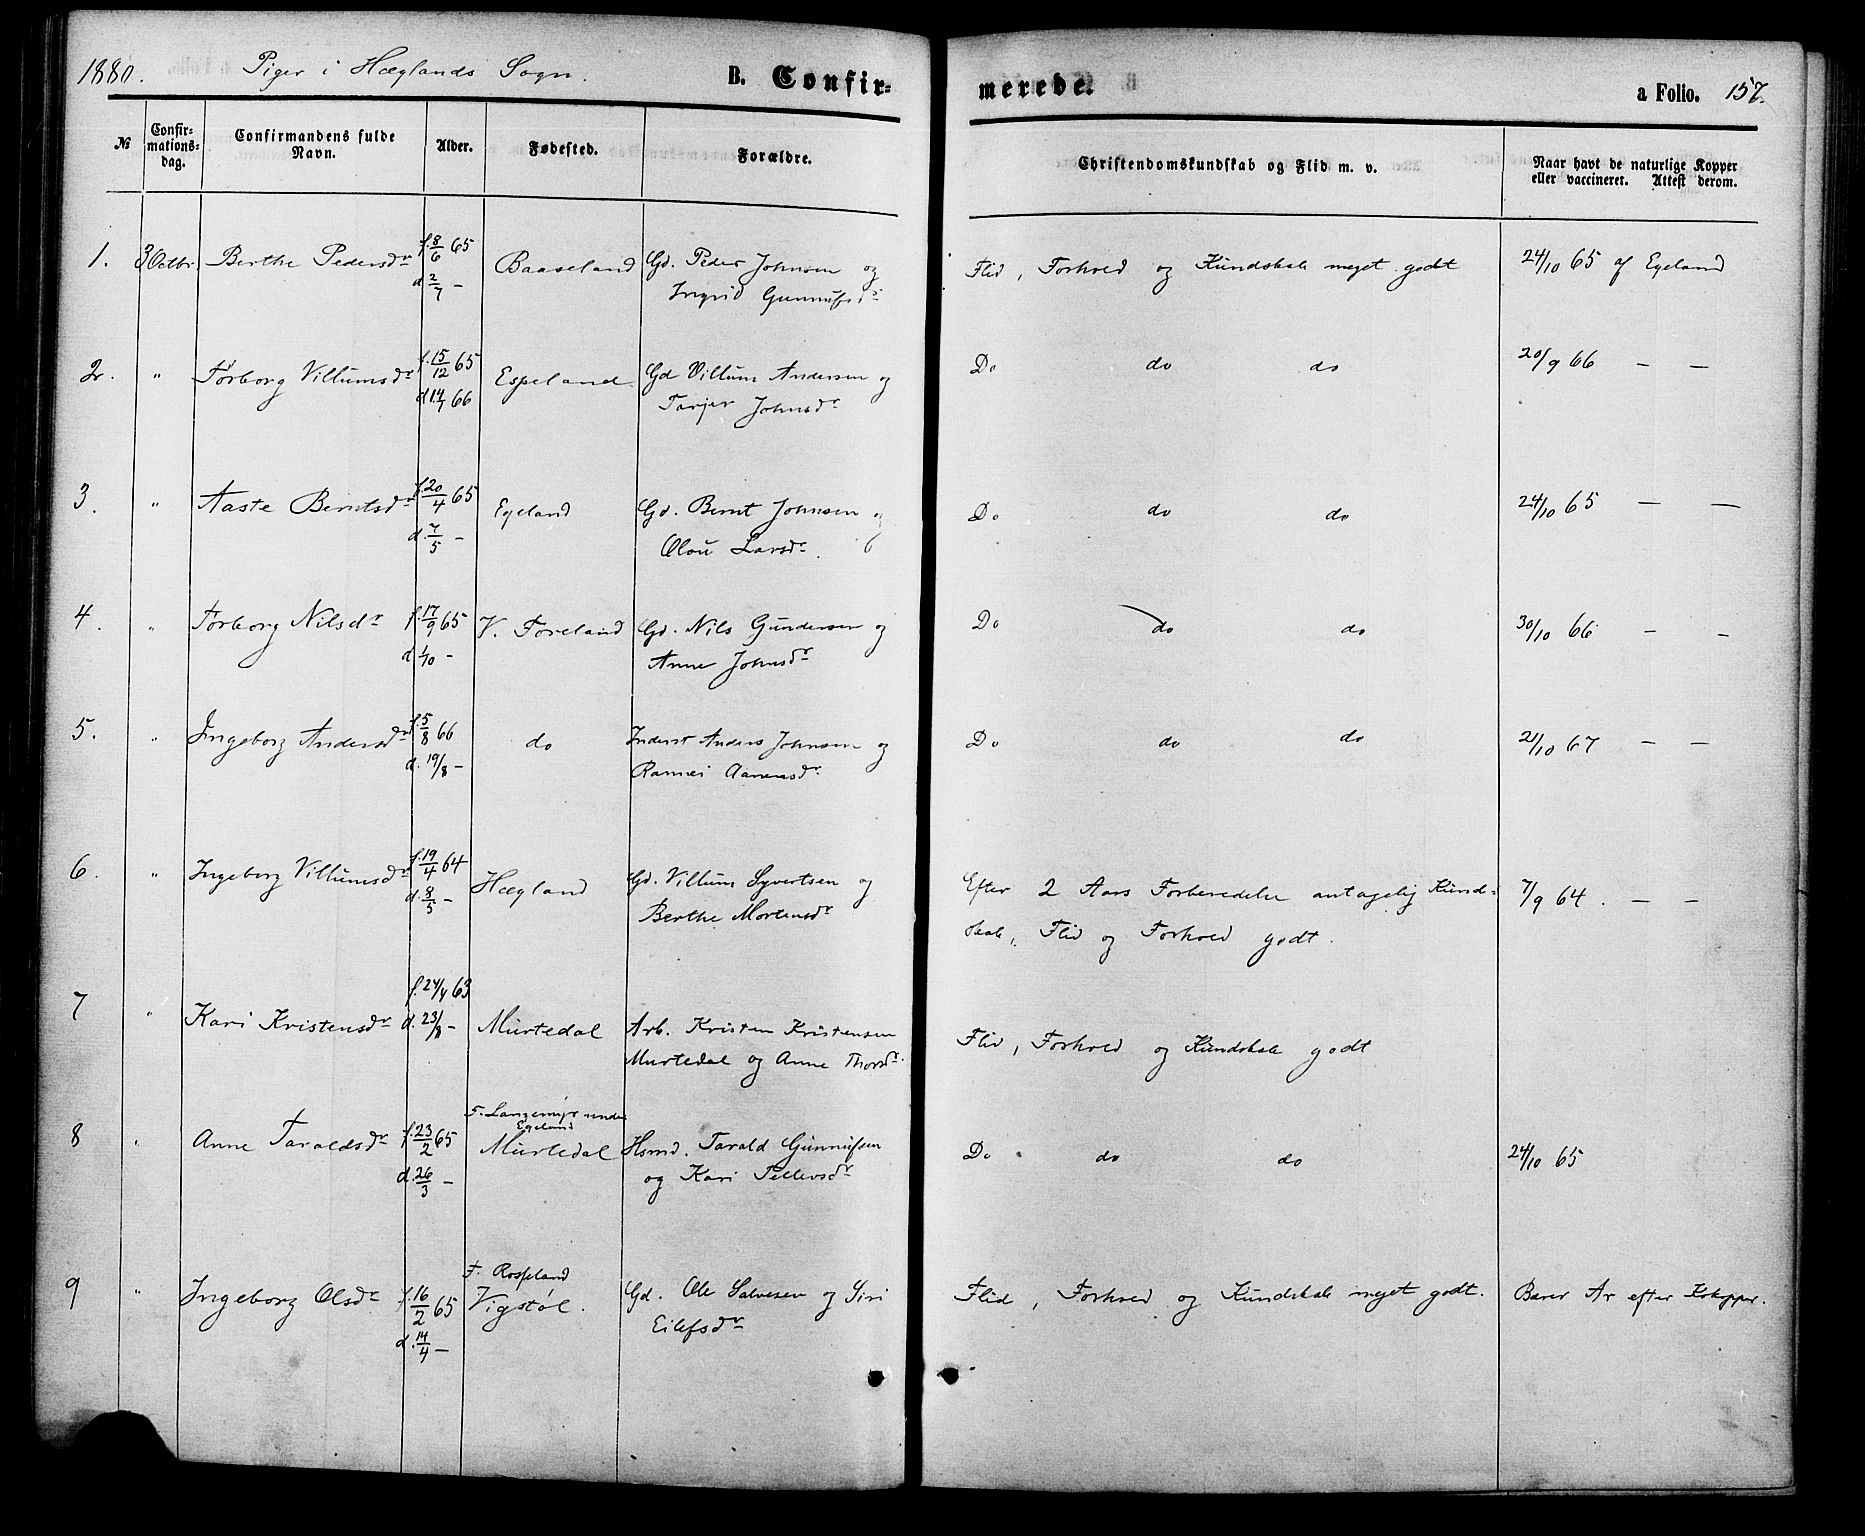 1880. Piger i Hæglands Sogn. B. Confirmerede. a Folio. 157.
№ Confirmationsdag. Confirmandens fulde Navn. Alder. Fødested. Forældre. Christendomskundskab og Flid m. v. Naar havt de naturlige Kopper eller vaccineret. Attest derom.
1. 3 Octbr. Berthe Pedersdr f. 8/6 65 Baaseland Gd. Peder Johnsen og Flid, Forhold og Kundskab meget godt 24/10 65 af Egeland
d 2/7 – Ingrid Gunnufsdr
2. " Torborg Villumsdr f. 15/12 65 Espeland Gd Villum Andersen og Do do do 20/9 66 – –
d 14/7 66 Tarjer Johnsdr
3. " Aaste Berntsdr f. 20/4 65 Egeland Gd. Bernt Johnsen og Do do do 24/10 65 – –
d. 7/5 – Olou Larsdr.
4. " Torborg Nilsdr f. 17/9 65 V. Foreland Gd. Nils Gundersen og Do do do 30/10 66 – –
d. 1/10 – Anne Johnsdr
5. " Ingeborg Andersdr f. 5/8 66 do Inderst Anders Johnsen og Do do do 21/10 67 – –
d. 19/8 – Rannei Aanensdr.
6. " Ingeborg Villumsdr f. 19/4 64 Hægland Gd. Villum Syvertsen og Efter 2 Aars Forberedelse antagelig Kund- 7/9 64. – –
d. 8/5 – Berthe Mortensdr skab, Flid og Forhold godt.
7 " Kari Kristensdr f. 24/4 63 Murtedal Arb. Kristen Kristensen Flid, Forhold og Kundskab godt
d. 23/8 – Murtedal og Anne Thorsdr.
F. Langemyr under
Egeland
8 " Anne Taraldsdr f. 23/2 65 Murtedal Hsmd. Tarald Gunnufsen Do do do 24/10 65
d. 26/3 – og Kari Tellevsdr
F. Rosseland
9 " Ingeborg Olsdr f. 16/2 65 Vigstøl. Gd. Ole Salvesen og Siri Flid, Forhold og Kundskab meget godt. Bærer Ar efter Kokopper.
d. 14/4 – Eilefsdr